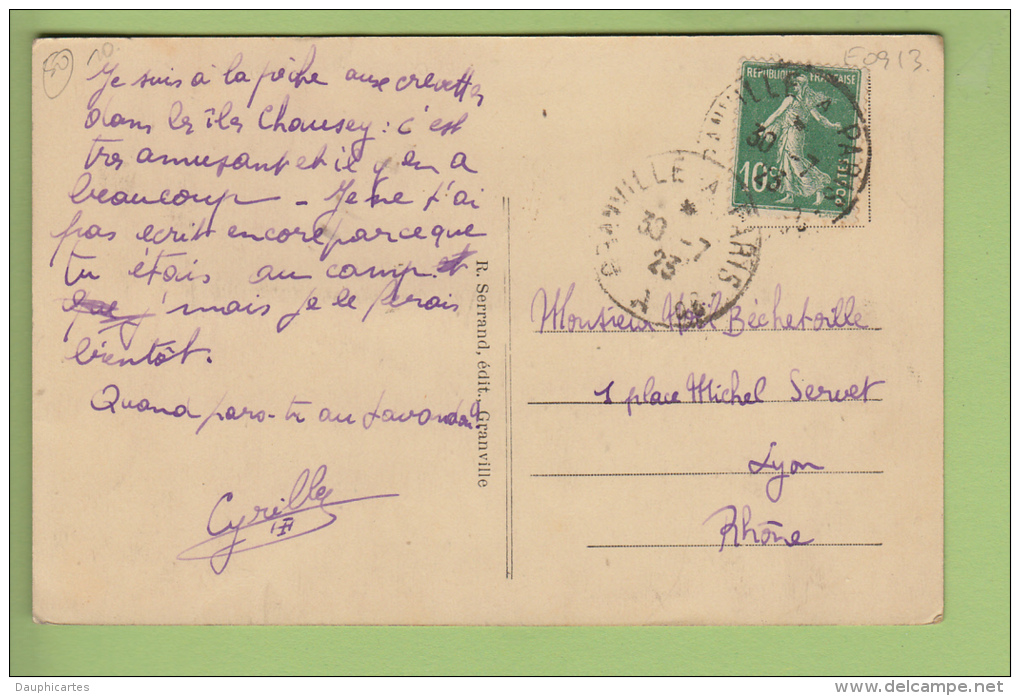 50
E0913.
Je suis à la pêche aux crevettes
dans les îles Chausey : c'est
très amusant et il y en a
beaucoup - Je ne t'ai
pas écrit encore parce que
tu étais au camp et
que j'mais je le ferais
bientôt.
Quand pars-tu au Lavandou?
Cyrille
R. Serrand, édit., Granville
REPUBLIQUE FRANÇAISE
10c
POSTES
GRANVILLE A PARIS
30 - 7
23
GRANVILLE A PARIS
30 - 7
23
Monsieur Noël Béchetoille
1 place Michel Servet
Lyon
Rhône
Dauphicartes
www.delcampe.net